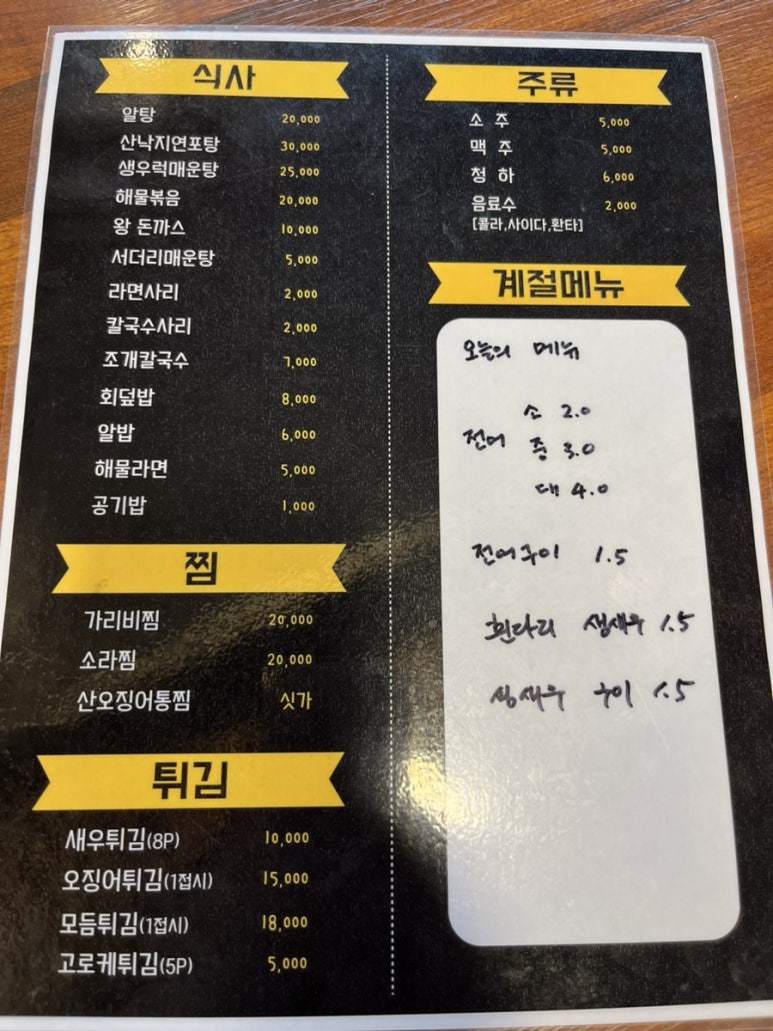 식사
알탕 20,000
산낙지연포탕 30,000
생우럭매운탕 25,000
해물볶음 20,000
왕 돈까스 10,000
서더리매운탕 5,000
라면사리 2,000
칼국수사리 2,000
조개칼국수 7,000
회덮밥 8,000
알밥 6,000
해물라면 5,000
공기밥 1,000
찜
가리비찜 20,000
소라찜 20,000
산오징어통찜 싯가
튀김
새우튀김(8P) 10,000
오징어튀김(1접시) 15,000
모듬튀김(1접시) 18,000
고로케튀김(5P) 5,000
주류
소 주 5,000
맥 주 5,000
청 하 6,000
음료수 2,000
[콜라,사이다,환타]
계절메뉴
오늘의 메뉴
소 2.0
전어 중 3.0
대 4.0
전어구이 1.5
흰다리 생새우 1.5
생새우 구이 1.5